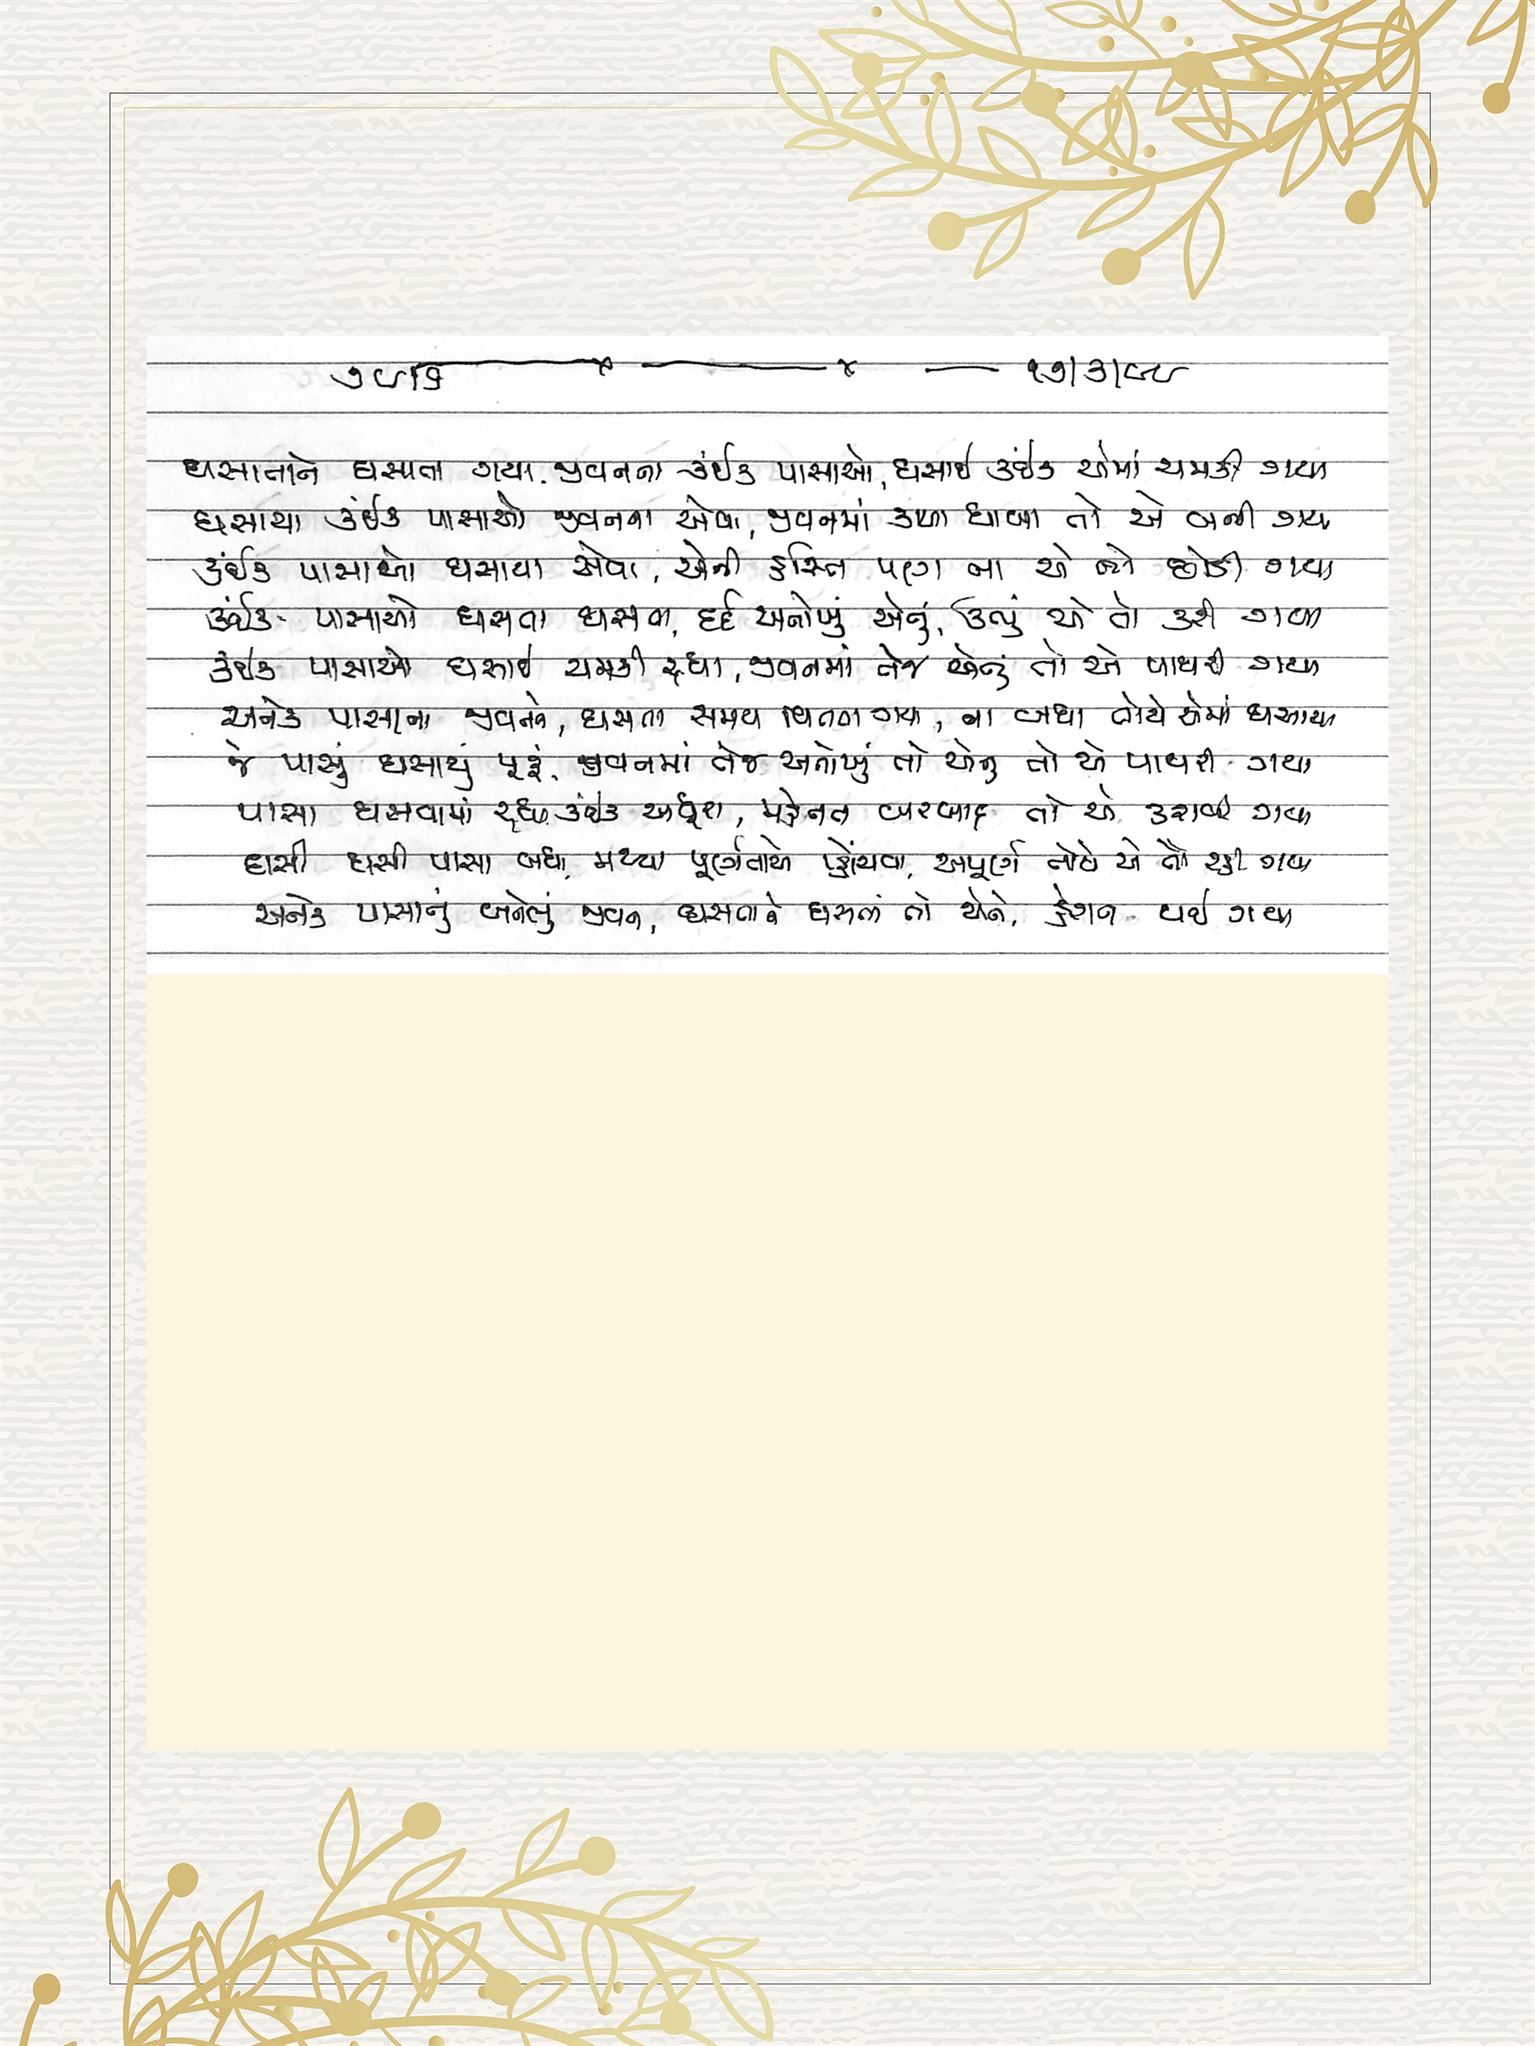 ૧૭/૩/૯૮
ઘસાતાને ઘસાતા ગયા. જીવનના કંઈક પાસાઓ, ઘસાઈ કંઈક એમાં ચમકી ગયા
ઘસાયા કંઈક પાસાઓ જીવનના એવા, જીવનમાં કાળા ધાબા તો એ બની ગયા
કંઈક પાસાઓ ઘસાયા એવા, એની હસ્તિ પણ ના એ તો છોડી ગયા
કંઈક પાસાઓ ઘસતા ઘસતા, દર્દ અનોખું એનું, ઉત્પું એ તો કરી ગયા
કંઈક પાસાઓ ઘસાઈ ચમકી રહ્યા, જીવનમાં તેજ એનું તો એ પાથરી ગયા
અનેક પાસાના જીવનને, ઘસતા સમય વિતતા ગયા, ના બધા તોયે એમાં ઘસાયા
જે પાસું ઘસાયું પૂરૂં, જીવનમાં તેજ અનોખું તો એનુ તો એ પાથરી ગયા
પાસા ઘસવામાં રહ્યા કંઈક અધૂરા, મહેનત બરબાદ તો એ કરાવી ગયા
ઘસી ઘસી પાસા બધા, મથ્યા પૂર્ણતાએ પ્હોંચવા, અપૂર્ણ તોયે એ તો રહી ગયા
અનેક પાસાનું બનેલું જીવન, ઘસતાને ઘસતાં તો એને, હેરાન થઈ ગયા